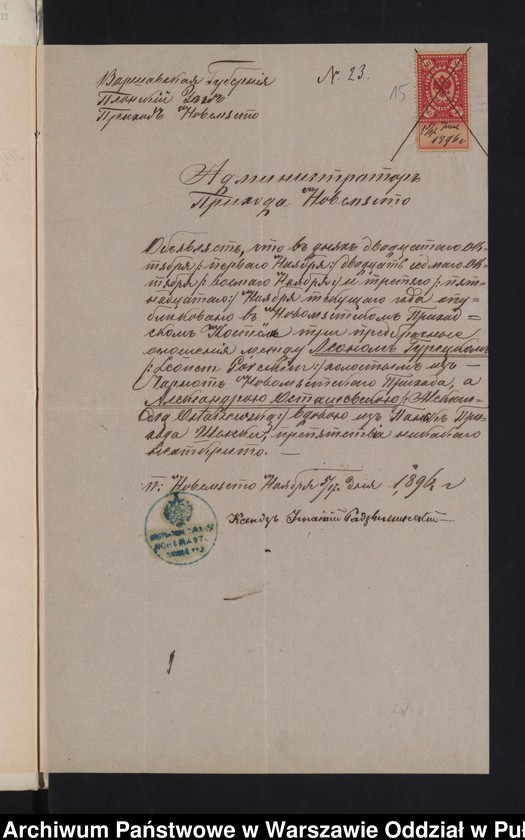 Варшавская Губернія
Плонскій Уѣздъ
Приходъ Новемясто
N. 23.
15
1896 г
Администраторъ
Прихода Новемясто
Объявляетъ, что въ дняхъ двадцатаго Ок-
тября /: перваго Ноября :/ двадцать седмаго Ок-
тября /: восмаго Ноября :/ и третяго /: пят-
надцатаго :/ Ноября текущаго года опу-
бликовано въ Новомястскомъ Приход-
скомъ Костеле три предбрачные
оношенія между Леономъ Гурецкимъ
/: Leonem Górskim :/ холостымъ изъ
Новомястскаго Прихода, а
Александрою Осташевскою /:
вдовою изъ При-
хода препятствія никакаго
неатбрито. —
п: Новемясто Ноября 5/17 дня 1896 г
Ксендзъ Игнатій
Archiwum Państwowe w Warszawie Oddział w Puł